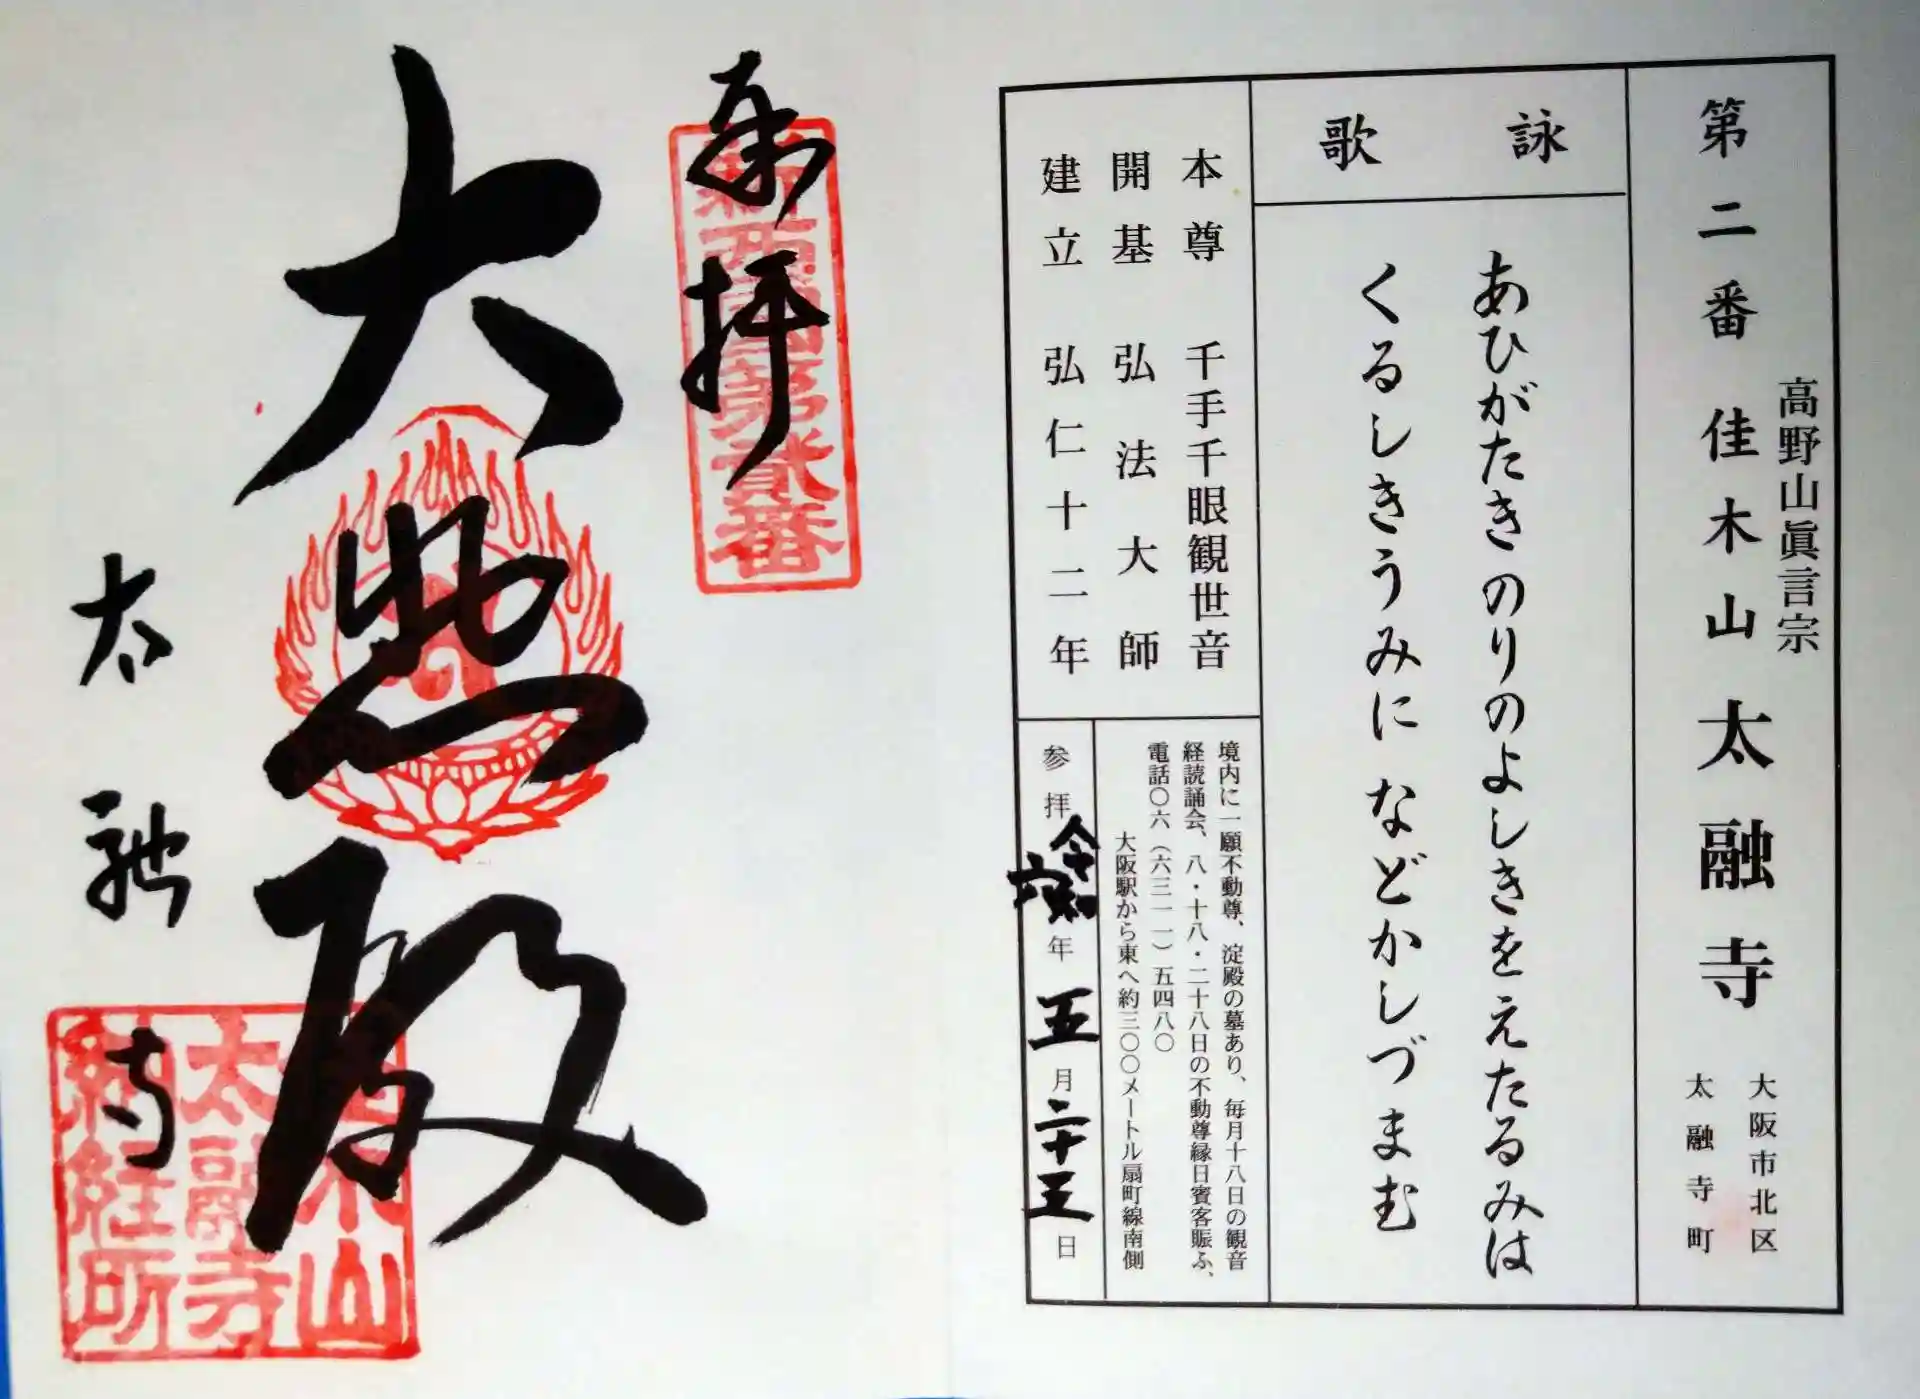 第二番 佳木山 太融寺
高野山眞言宗
大阪市北区
太融寺町
詠歌
あひがたきのりのよしきをえたるみは
くるしきうみに などかしづまむ
本尊 千手千眼観世音
開基 弘法大師
建立 弘仁十二年
境内に一願不動尊、淀殿の墓あり、毎月十八日の観音
経読誦会、八・十八・二十八日の不動尊縁日賓客賑ふ、
電話〇六(六三一一)五四八〇
大阪駅から東へ約三〇〇メートル扇町線南側
参拝 令和 年 五 月 二十三 日
奉拝
新西国第貳番
大悲殿
太融寺
佳木山
太融寺
納経所